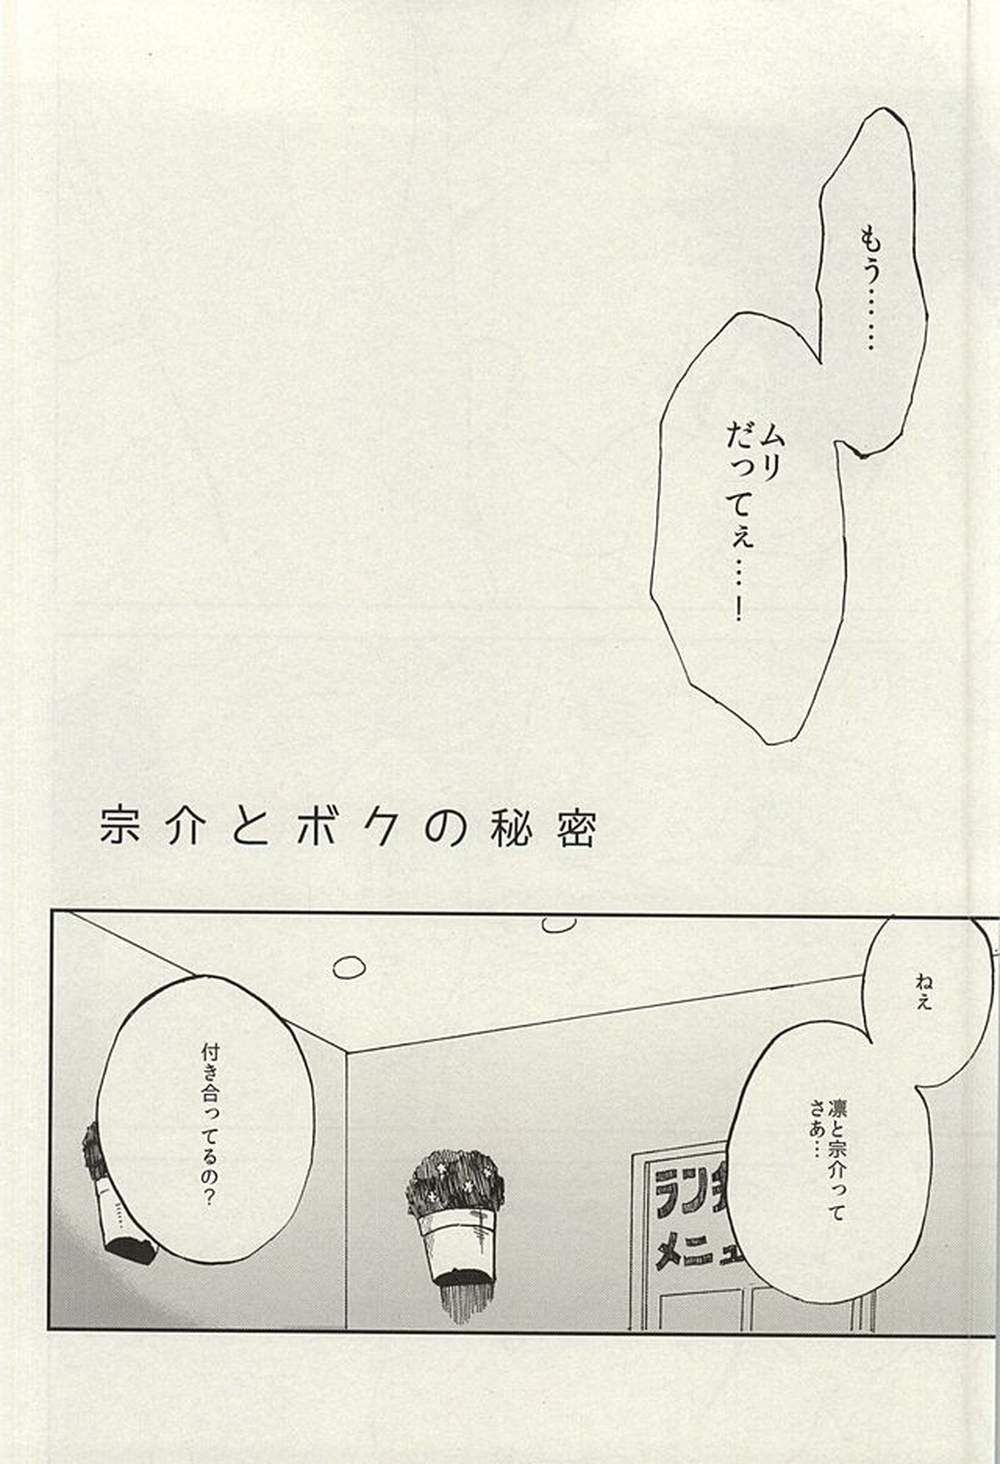 もう……
ムリ
だってぇ…！
宗介とボクの秘密
ねぇ
凛と宗介って
さあ…
ランチ
メニュ
付き合ってるの？